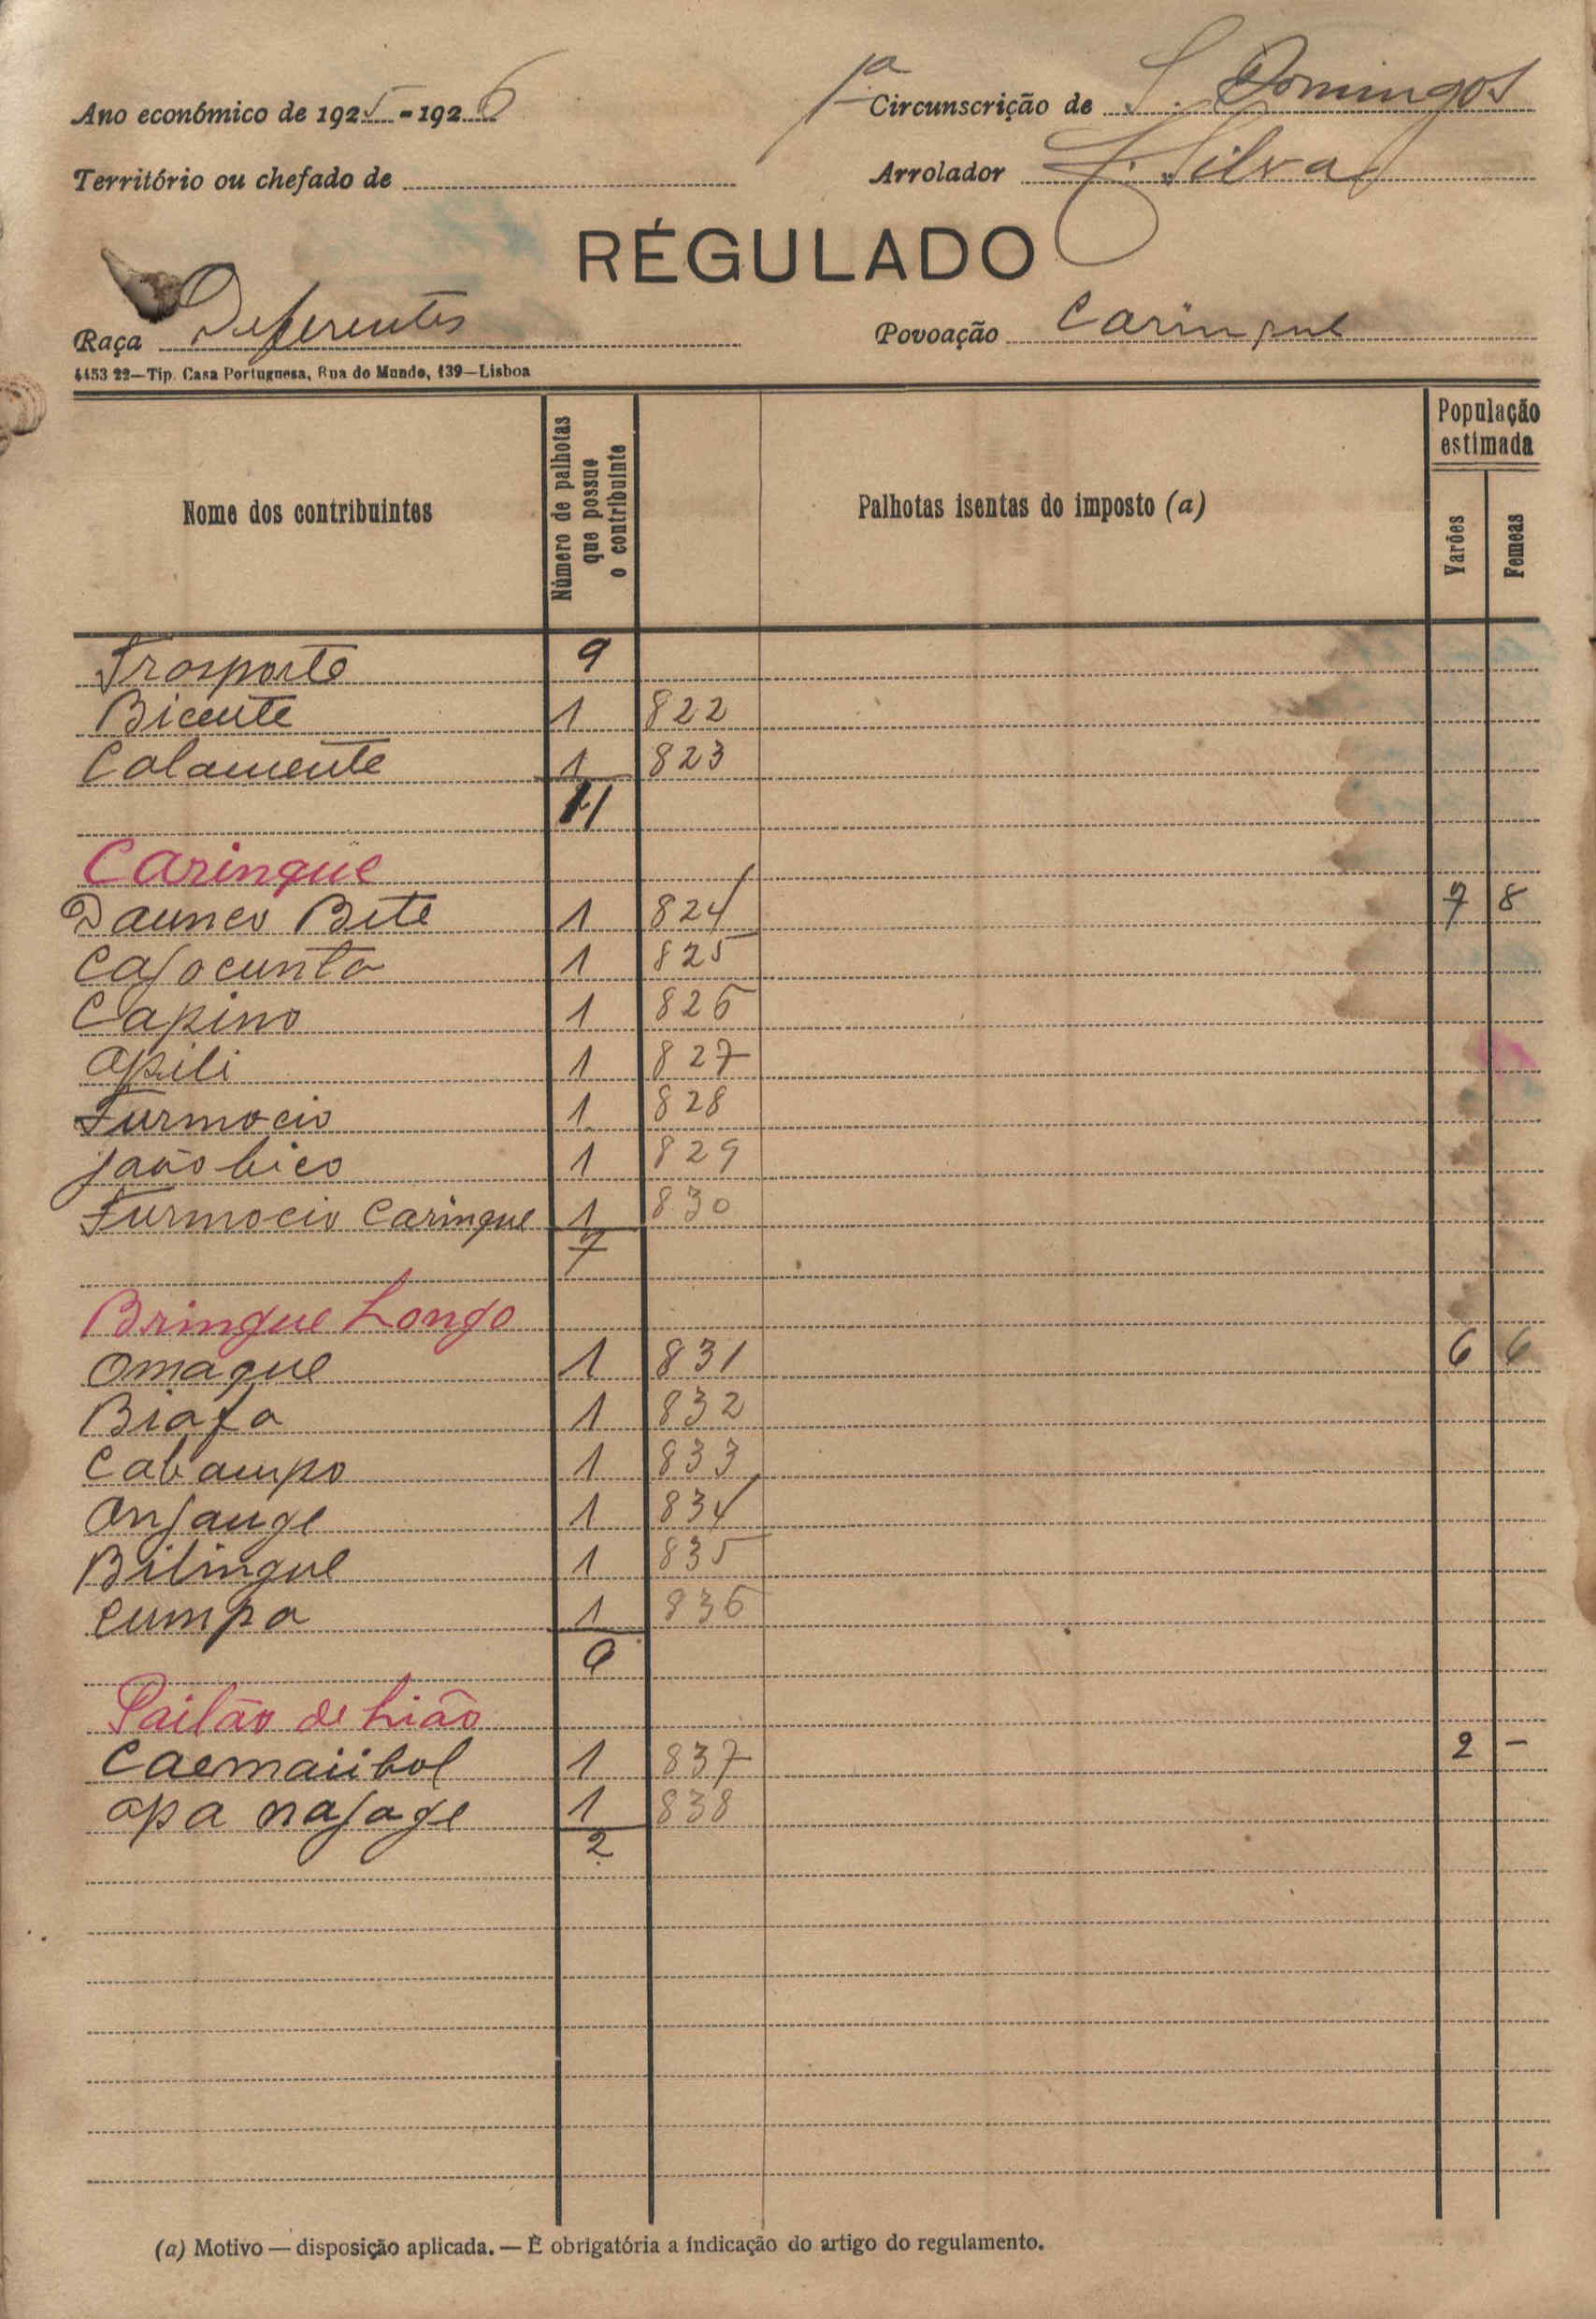 Ano económico de 1925-1926
1ª Circunscrição de S. Domingos
Território ou chefado de
Arrolador J. Silva
RÉGULADO
Raça Deferentes
Povoação Caringue
4453 22—Tip. Casa Portuguesa, Rua do Mundo, 139—Lisboa
Nome dos contribuintes
Número de palhotas que possue o contribuinte
Palhotas isentas do imposto (a)
População estimada
Varões
Femeas
Trosporte 9
Bicente 1 822
Calamente 1 823
11
Caringue
Daunco Bite 1 824 7 8
Cajocunta 1 825
Capino 1 826
Apili 1 827
Furmocio 1 828
1 829
Furmocio Caringue 1 830
7
Bringue Longo
Omaque 1 831 6 6
Biafa 1 832
Cabampo 1 833
Anjauge 1 834
Bilingue 1 835
Cumpa 1 836
6
Pailão de Lião
1 837 2 -
Apa najage 1 838
2
(a) Motivo — disposição aplicada. — É obrigatória a indicação do artigo do regulamento.